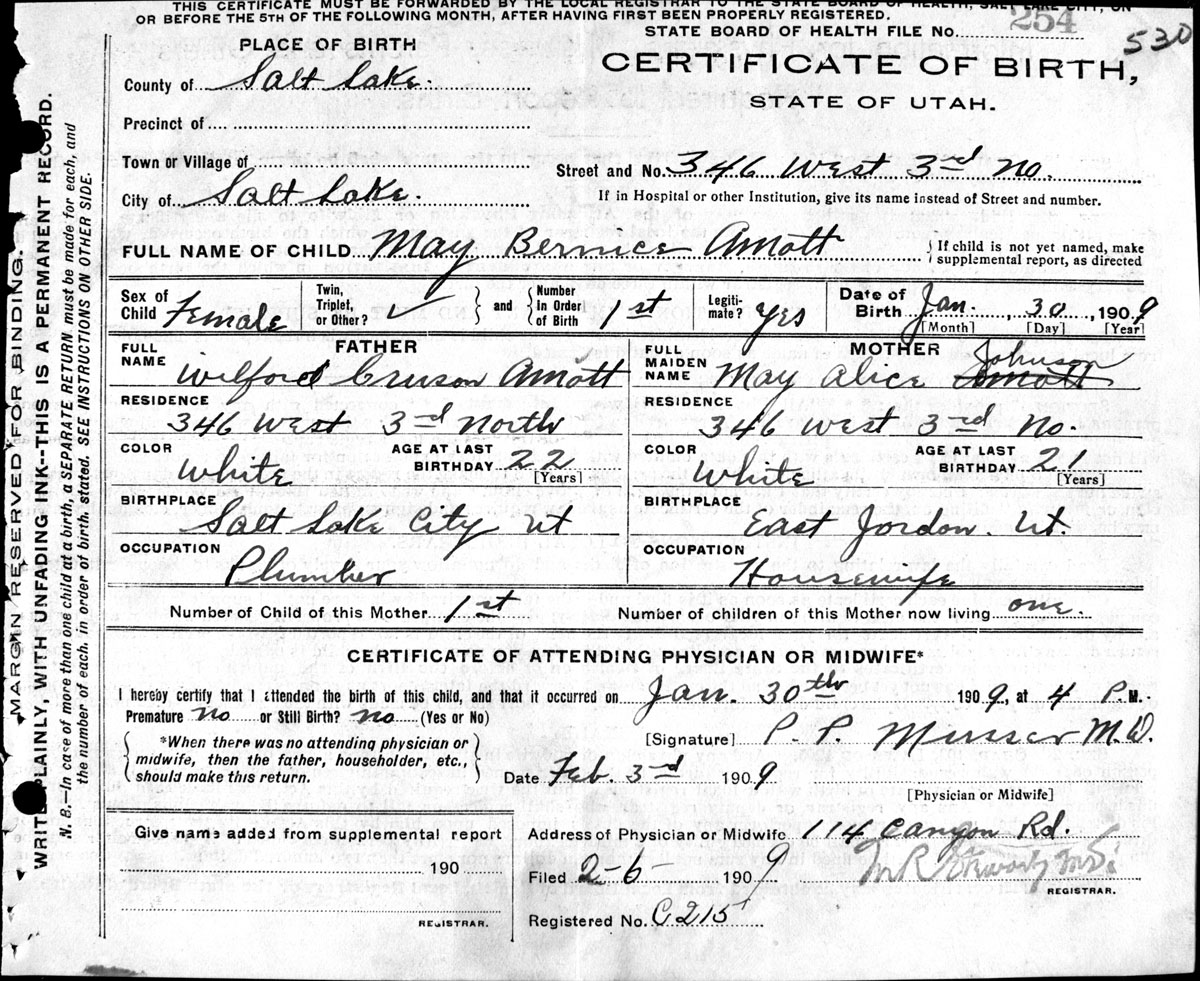 THIS CERTIFICATE MUST BE FORWARDED BY THE LOCAL REGISTRAR TO THE STATE BOARD OF HEALTH, SALT LAKE CITY, ON
OR BEFORE THE 5TH OF THE FOLLOWING MONTH, AFTER HAVING FIRST BEEN PROPERLY REGISTERED.
STATE BOARD OF HEALTH FILE No. 254
530
PLACE OF BIRTH
CERTIFICATE OF BIRTH,
STATE OF UTAH.
County of Salt Lake.
Precinct of
Town or Village of
Street and No. 346 West 3rd No.
City of Salt Lake.
If in Hospital or other Institution, give its name instead of Street and number.
FULL NAME OF CHILD May Bernice Amott
If child is not yet named, make
supplemental report, as directed
Sex of Child Female
Twin, Triplet, or Other?
and
Number In Order of Birth 1st
Legiti-mate? Yes
Date of Birth Jan. 30, 1909
[Month] [Day] [Year]
FATHER
FULL NAME Wilford Cruson Amott
RESIDENCE
346 West 3rd North
COLOR White
AGE AT LAST BIRTHDAY 22
[Years]
BIRTHPLACE
Salt Lake City Ut
OCCUPATION
Plumber
MOTHER
FULL MAIDEN NAME May Alice Amott
RESIDENCE
346 West 3rd No.
COLOR White
AGE AT LAST BIRTHDAY 21
[Years]
BIRTHPLACE
East Jordon. Ut.
OCCUPATION
Housewife
Number of Child of this Mother 1st
Number of children of this Mother now living one.
CERTIFICATE OF ATTENDING PHYSICIAN OR MIDWIFE*
I hereby certify that I attended the birth of this child, and that it occurred on Jan. 30th 1909, at 4 P. M.
Premature no or Still Birth? no (Yes or No)
[Signature] P. P. Musser M.D.
*When there was no attending physician or
midwife, then the father, householder, etc.,
should make this return.
Date Feb. 3rd 1909
[Physician or Midwife]
Give name added from supplemental report
190
REGISTRAR.
Address of Physician or Midwife 114 Canyon Rd.
Filed 2-6 1909
REGISTRAR.
Registered No. C215
MARGIN RESERVED FOR BINDING.
WRITE PLAINLY, WITH UNFADING INK--THIS IS A PERMANENT RECORD.
N. B.--In case of more than one child at a birth, a SEPARATE RETURN must be made for each, and
the number of each, in order of birth, stated. SEE INSTRUCTIONS ON OTHER SIDE.